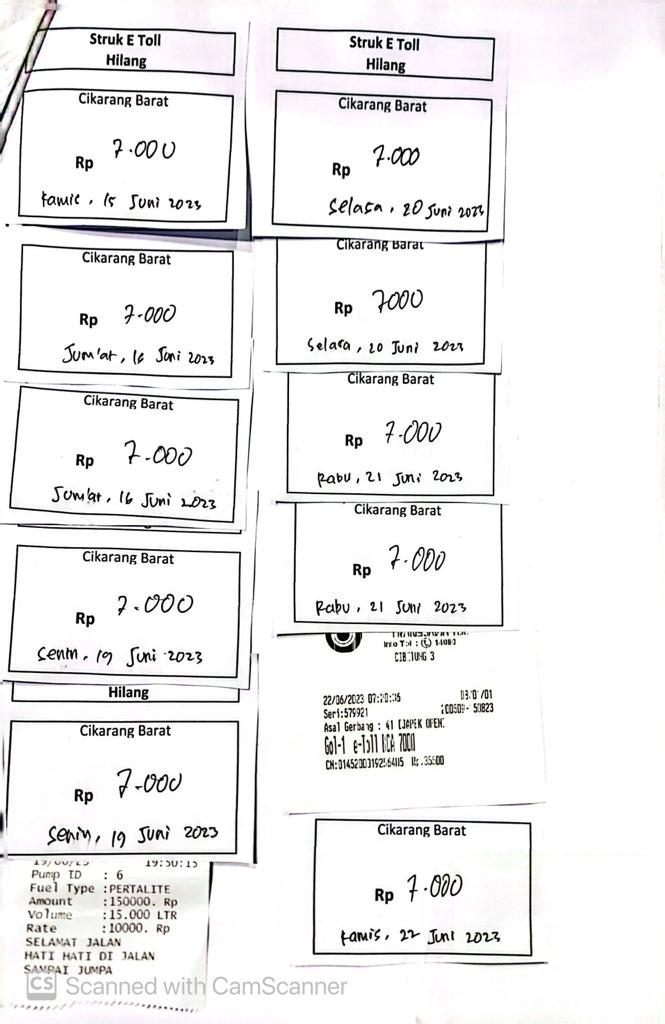 Struk E Toll
Hilang
Cikarang Barat
Rp 7.000
Kamis, 15 Juni 2023
Cikarang Barat
Rp 7.000
Jum'at, 16 Juni 2023
Cikarang Barat
Rp 7.000
Jum'at, 16 Juni 2023
Cikarang Barat
Rp 7.000
Senin, 19 Juni 2023
Hilang
Cikarang Barat
Rp 7.000
Senin, 19 Juni 2023
19:50:15
Pump ID : 6
Fuel Type :PERTALITE
Amount :150000. Rp
Volume :15.000 LTR
Rate :10000. Rp
SELAMAT JALAN
HATI HATI DI JALAN
SAMPAI JUMPA
Struk E Toll
Hilang
Cikarang Barat
Rp 7.000
Selasa, 20 Juni 2023
Cikarang Barat
Rp 7000
Selasa, 20 Juni 2023
Cikarang Barat
Rp 7.000
Rabu, 21 Juni 2023
Cikarang Barat
Rp 7.000
Rabu, 21 Juni 2023
CIBITUNG 3
22/06/2023
Seri:579921
Asal Gerbang : 41
Gol-1 e-Toll BCA 7000
Cikarang Barat
Rp 7.000
Kamis, 22 Juni 2023
CS Scanned with CamScanner